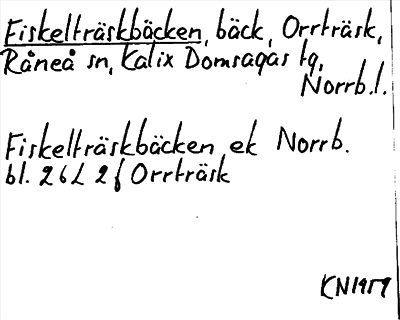 Fiskelträskbäcken, bäck, Orrträsk,
Råneå sn, Kalix Domsagas tg,
Norrb.l.
Fiskelträskbäcken ek Norrb.
bl. 26L 2f Orrträsk
KN1959